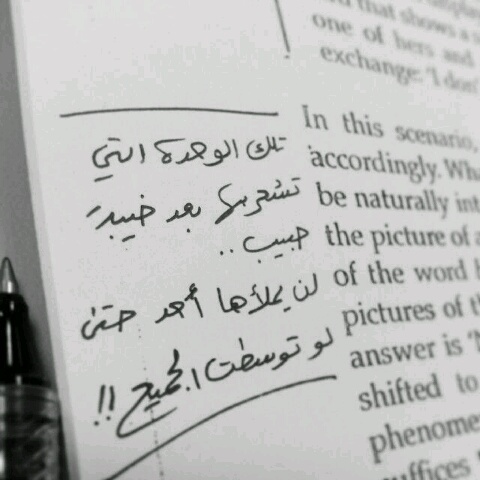 that shows a
one of hers and
exchange: 'I don'
تلك الوحدة التي
تشعر بها بعد خيبة
حبيب ..
لن يملأها أحد حتى
لو توسطت الجميع !!
In this scenario,
accordingly. Wha
be naturally int
the picture of a
of the word
pictures of t
answer is '
shifted to
phenome
suffices